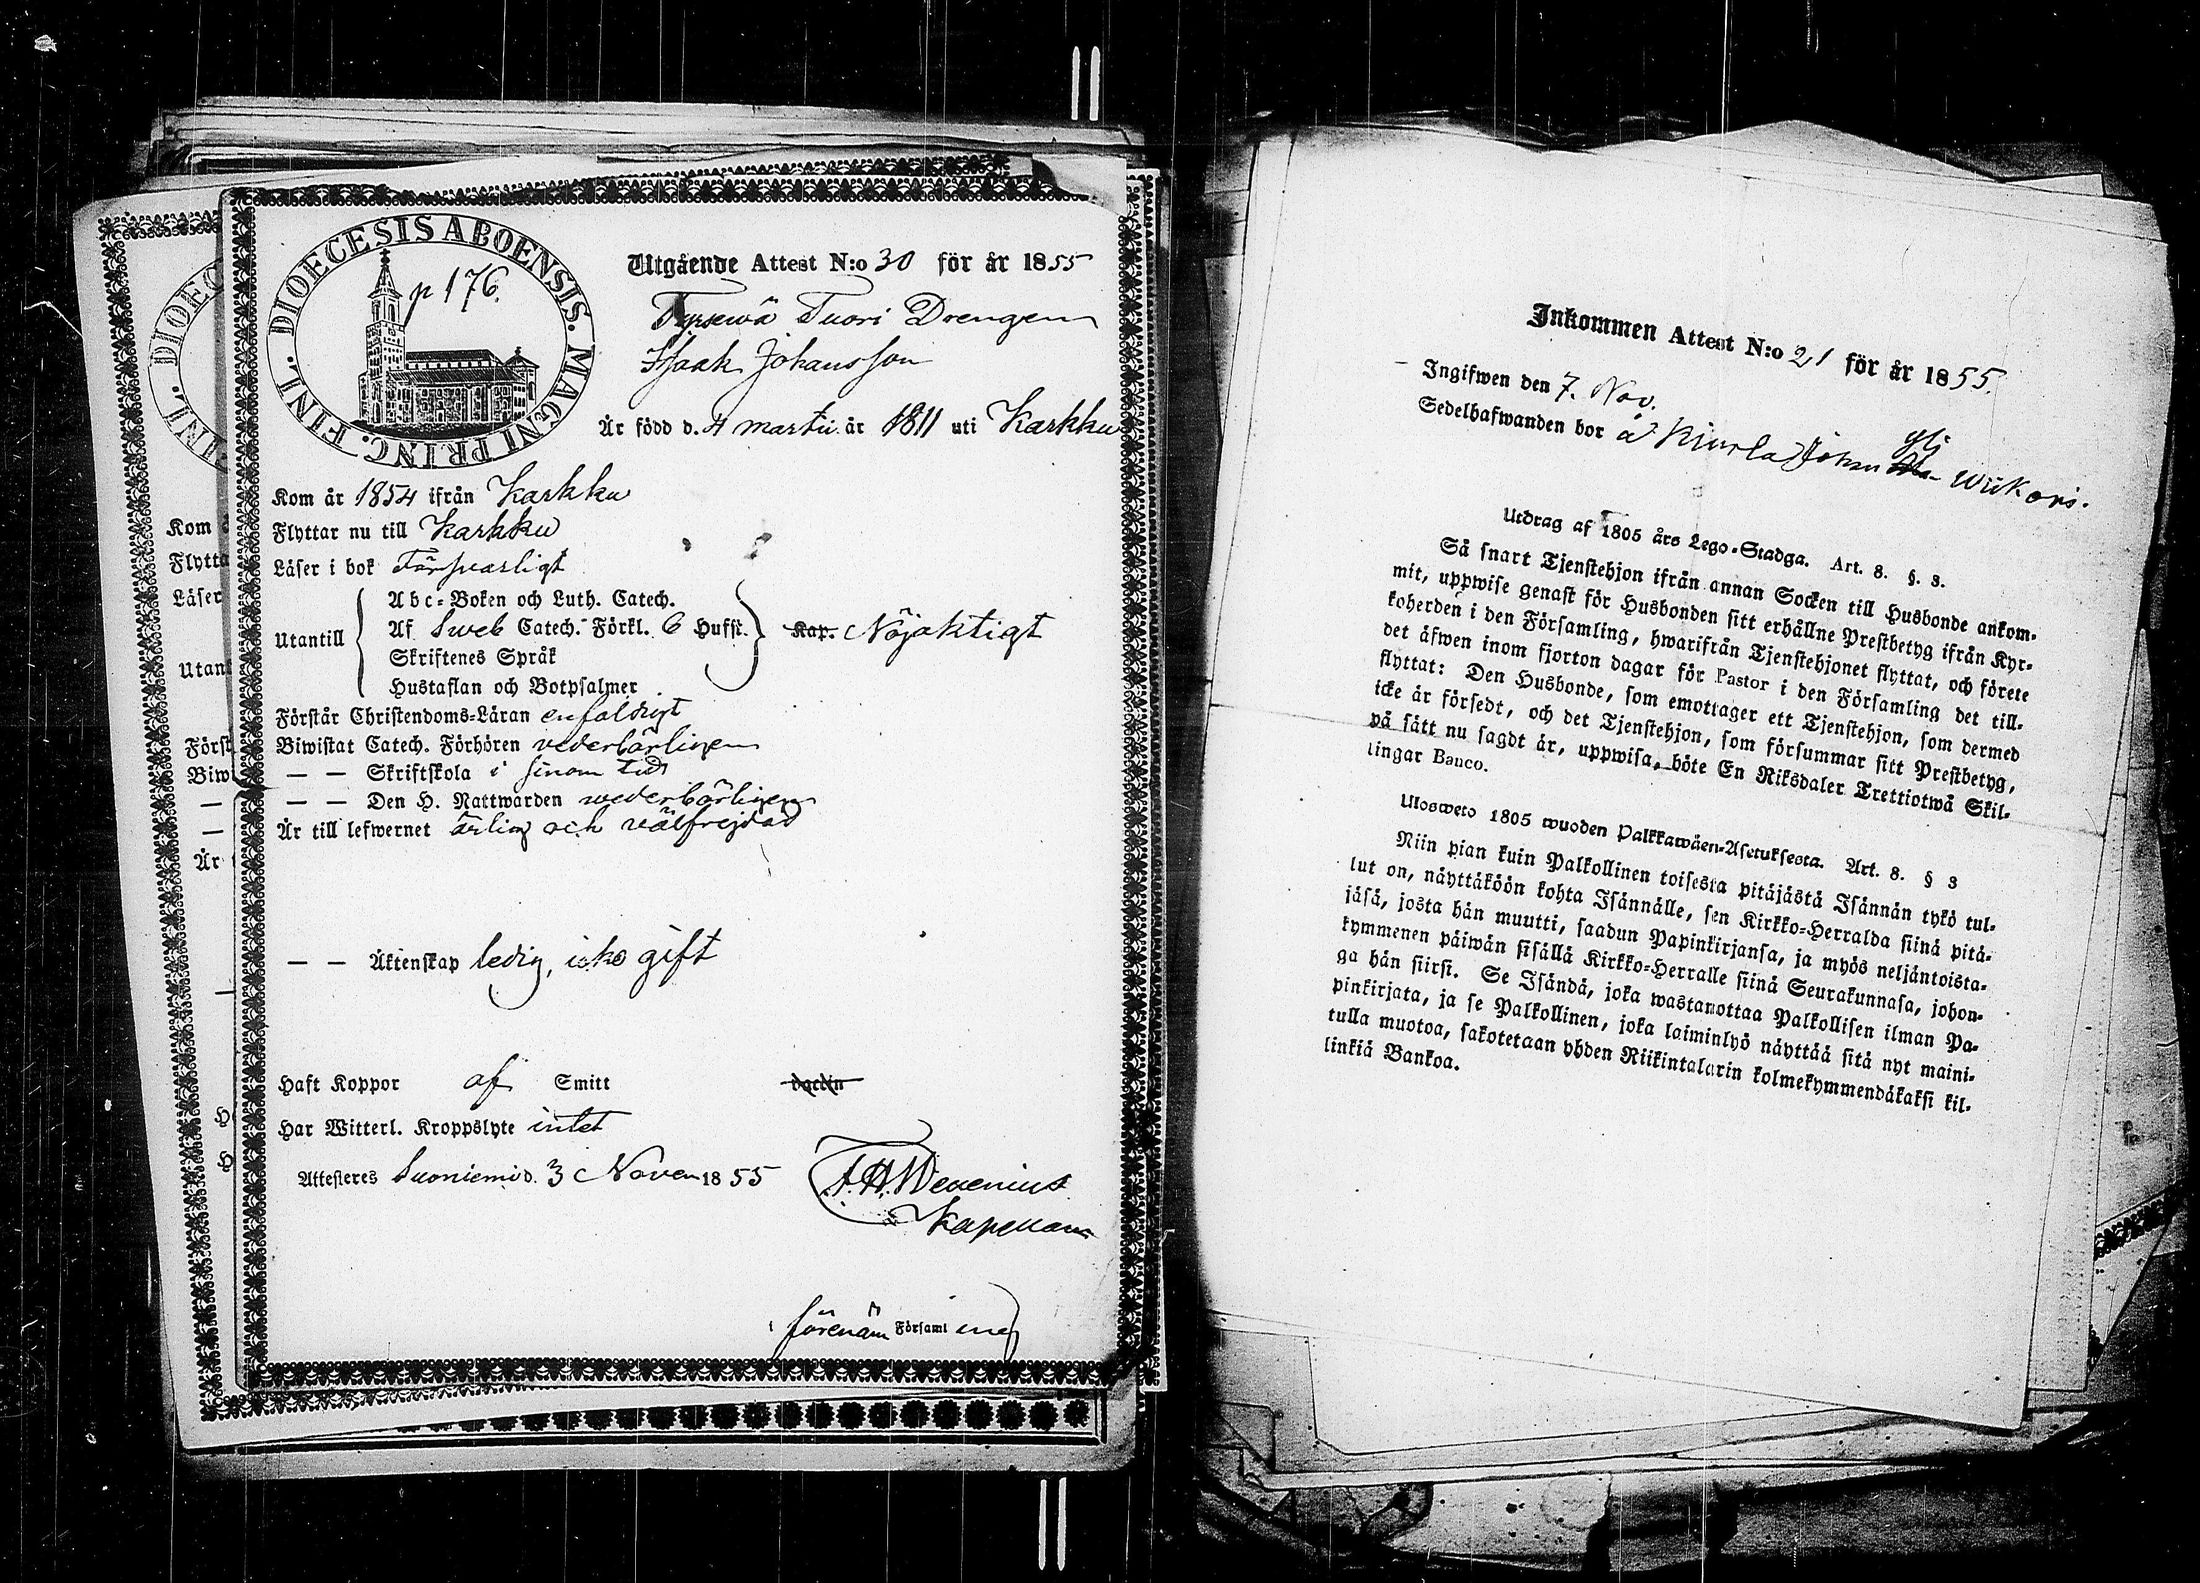 DIOECESIS ABOENSIS. MAGNI PRINC. FINL.
p 176.
Utgående Attest N:o 30 för år 1855
Tyrsewä Tuori Drengen
Isaak Johansson
Är född d. 4 martii år 1811 uti Karkku
Kom år 1854 ifrån Karkku
Flyttar nu till Karkku
Läser i bok Försvarligt
Utantill
Abc-Boken och Luth. Catech.
Af Sweb Catech. Förkl. 6 Hufst.
Skriftenes Språk
Hustaflan och Botpsalmer
Kap. Nöjaktigt
Förstår Christendoms-Läran enfaldigt
Biwistat Catech. Förhören vederbörligen
— — Skriftskola i sinom tid
— — Den H. Nattwarden wederbörligen
Är till lefwernet ärlig och välfrejdad
— — Äktenskap ledig, icke gift
Haft Koppor af Smitt daccin
Har Witterl. Kroppslyte intet
Attesteres Suoniemi d. 3 Novem 1855
Kapellan
i förenäm Församl ing
Kom
Flytta
Läser
Utant
Först
Biw
Är
Inkommen Attest N:o 21 för år 1855.
Ingifwen den 7. Nov.
Sedelhafwanden bor å Kiurla Johan Yli Wiikari.
Utdrag af 1805 års Lego-Stadga. Art. 8. §. 3.
Så snart Tjenstehjon ifrån annan Socken till Husbonde ankom-
mit, uppwise genast för Husbonden sitt erhållne Prestbetyg ifrån Kyr-
koherden i den Församling, hwarifrån Tjenstehjonet flyttat, och förete
det äfwen inom fjorton dagar för Pastor i den Församling det till-
flyttat: Den Husbonde, som emottager ett Tjenstehjon, som dermed
icke är försedt, och det Tjenstehjon, som försummar sitt Prestbetyg,
på sätt nu sagdt är, uppwisa, böte En Riksdaler Trettiotwå Skil-
lingar Banco.
Uloswcto 1805 wuoden Palkkawäen-Asetuksesta. Art. 8. § 3
Niin pian kuin Palkollinen toisesta pitäjästä Isännän tykö tul-
lut on, näyttäköön kohta Isännälle, sen Kirkko-Herralda siinä pitä-
jäsä, josta hän muutti, saadun Papinkirjansa, ja myös neljäntoista-
kymmenen päiwän sisällä Kirkko-Herralle siinä Seurakunnasa, johon-
ga hän siirsi. Se Isändä, joka wastanottaa Palkollisen ilman Pa-
pinkirjata, ja se Palkollinen, joka laiminlyö näyttää sitä nyt maini-
tulla muotoa, sakotetaan yhden Riikintalarin kolmekymmendäkaksi kil-
linkiä Bankoa.